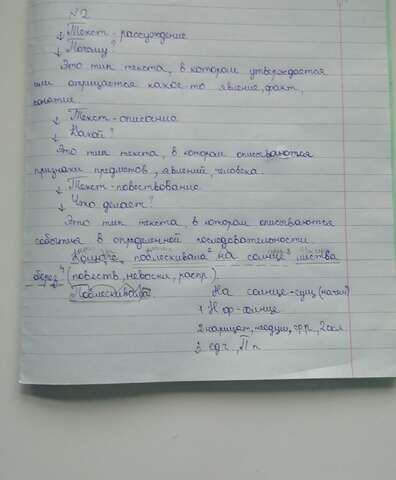 №2
↓ Текст - рассуждение
↓ Почему?
Это тип текста, в котором утверждается
или отрицается какое-то явление, факт,
понятие.
↓ Текст - описание
↓ Какой?
Это тип текста, в котором описываются
признаки предметов, явлений, человека.
↓ Текст - повествование
↓ Что делает?
Это тип текста, в котором описываются
события в определенной последовательности.
поблескивала² на солнце³ листва
берез⁴ (повеств, невоскл, распр.).
Поблескивала. На солнце - сущ (начто)
1 Н ф - солнце
2 нарицат, неодуш, ср р, 2 скл
3 ед ч, П п